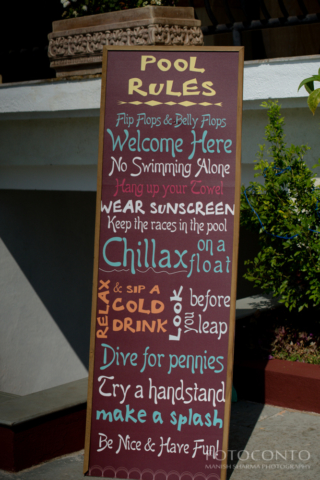 POOL
RULES
Flip Flops & Belly Flops
Welcome Here
No Swimming Alone
Hang up your Towel
WEAR SUNSCREEN
Keep the races in the pool
Chillax on a float
RELAX & SIP A COLD DRINK
Look before you leap
Dive for pennies
Try a handstand
make a splash
Be Nice & Have Fun!
FOTOCONTO
MANISH SHARMA PHOTOGRAPHY